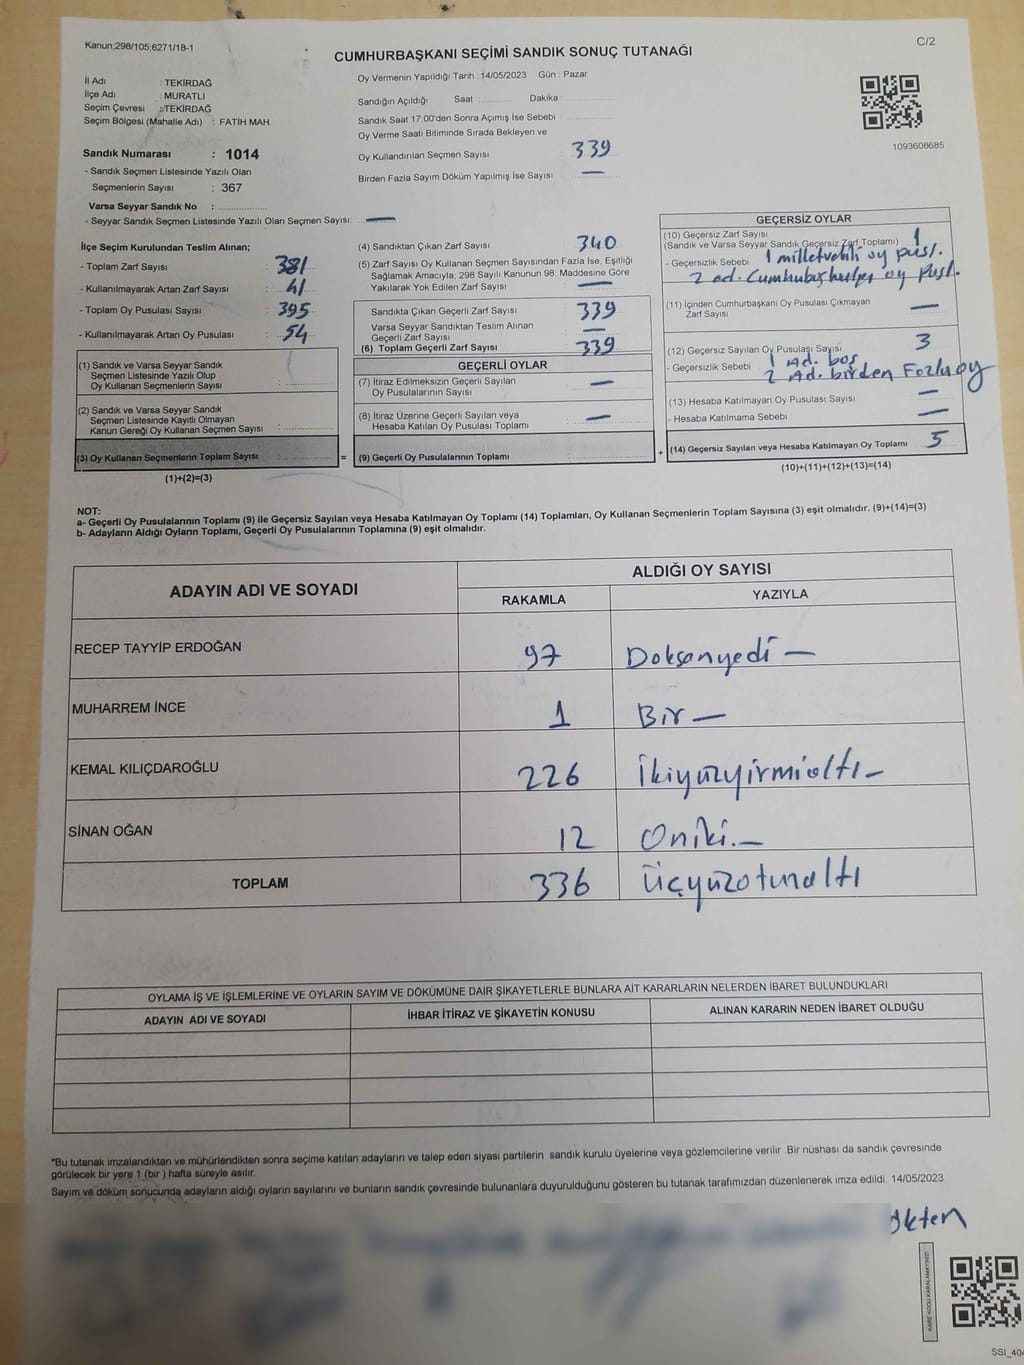 Kanun;298/105;6271/18-1
C/2
CUMHURBAŞKANI SEÇİMİ SANDIK SONUÇ TUTANAĞI
İl Adı : TEKİRDAĞ
İlçe Adı : MURATLI
Seçim Çevresi : TEKİRDAĞ
Seçim Bölgesi (Mahalle Adı) : FATİH MAH.
Sandık Numarası : 1014
- Sandık Seçmen Listesinde Yazılı Olan
Seçmenlerin Sayısı : 367
Varsa Seyyar Sandık No :
- Seyyar Sandık Seçmen Listesinde Yazılı Olan Seçmen Sayısı: —
Oy Vermenin Yapıldığı Tarih : 14/05/2023 Gün : Pazar
Sandığın Açıldığı Saat : Dakika :
Sandık Saat 17.00'den Sonra Açımış İse Sebebi :
Oy Verme Saati Bitiminde Sırada Bekleyen ve
Oy Kullandırılan Seçmen Sayısı : 339
Birden Fazla Sayım Döküm Yapılmış İse Sayısı : —
1093608685
İlçe Seçim Kurulundan Teslim Alınan;
- Toplam Zarf Sayısı : 381
- Kullanılmayarak Artan Zarf Sayısı : 41
- Toplam Oy Pusulası Sayısı : 395
- Kullanılmayarak Artan Oy Pusulası : 54
(1) Sandık ve Varsa Seyyar Sandık
Seçmen Listesinde Yazılı Olup
Oy Kullanan Seçmenlerin Sayısı :
(2) Sandık ve Varsa Seyyar Sandık
Seçmen Listesinde Kayıtlı Olmayan
Kanun Gereği Oy Kullanan Seçmen Sayısı :
(3) Oy Kullanan Seçmenlerin Toplam Sayısı :
(1)+(2)=(3)
=
(4) Sandıktan Çıkan Zarf Sayısı : 340
(5) Zarf Sayısı Oy Kullanan Seçmen Sayısından Fazla İse, Eşitliği
Sağlamak Amacıyla; 298 Sayılı Kanunun 98. Maddesine Göre
Yakılarak Yok Edilen Zarf Sayısı : —
Sandıkta Çıkan Geçerli Zarf Sayısı : 339
Varsa Seyyar Sandıktan Teslim Alınan
Geçerli Zarf Sayısı : —
(6) Toplam Geçerli Zarf Sayısı : 339
GEÇERLİ OYLAR
(7) İtiraz Edilmeksizin Geçerli Sayılan
Oy Pusulalarının Sayısı : —
(8) İtiraz Üzerine Geçerli Sayılan veya
Hesaba Katılan Oy Pusulası Toplamı : —
(9) Geçerli Oy Pusulalarının Toplamı :
+
GEÇERSİZ OYLAR
(10) Geçersiz Zarf Sayısı : 1
(Sandık ve Varsa Seyyar Sandık Geçersiz Zarf Toplamı)
- Geçersizlik Sebebi : 1 milletvekili oy pusl.
2 ad. Cumhurbaşkanlığı oy pusl.
(11) İçinden Cumhurbaşkanı Oy Pusulası Çıkmayan
Zarf Sayısı : —
(12) Geçersiz Sayılan Oy Pusulası Sayısı : 3
- Geçersizlik Sebebi : 1 Ad. boş
2 Ad. birden Fazla oy
(13) Hesaba Katılmayan Oy Pusulası Sayısı : —
- Hesaba Katılmama Sebebi : —
(14) Geçersiz Sayılan veya Hesaba Katılmayan Oy Toplamı : 5
(10)+(11)+(12)+(13)=(14)
NOT:
a- Geçerli Oy Pusulalarının Toplamı (9) ile Geçersiz Sayılan veya Hesaba Katılmayan Oy Toplamı (14) Toplamları, Oy Kullanan Seçmenlerin Toplam Sayısına (3) eşit olmalıdır. (9)+(14)=(3)
b- Adayların Aldığı Oyların Toplamı, Geçerli Oy Pusulalarının Toplamına (9) eşit olmalıdır.
ADAYIN ADI VE SOYADI
ALDIĞI OY SAYISI
RAKAMLA YAZIYLA
RECEP TAYYİP ERDOĞAN 97 Doksanyedi —
MUHARREM İNCE 1 Bir —
KEMAL KILIÇDAROĞLU 226 İkiyüzyirmialtı —
SİNAN OĞAN 12 Oniki. —
TOPLAM 336 Üçyüzotuzaltı
OYLAMA İŞ VE İŞLEMLERİNE VE OYLARIN SAYIM VE DÖKÜMÜNE DAİR ŞİKAYETLERLE BUNLARA AİT KARARLARIN NELERDEN İBARET BULUNDUKLARI
ADAYIN ADI VE SOYADI İHBAR İTİRAZ VE ŞİKAYETİN KONUSU ALINAN KARARIN NEDEN İBARET OLDUĞU
*Bu tutanak imzalandıktan ve mühürlendikten sonra seçime katılan adayların ve talep eden siyasi partilerin sandık kurulu üyelerine veya gözlemcilerine verilir. Bir nüshası da sandık çevresinde
görülecek bir yere 1 (bir ) hafta süreyle asılır.
Sayım ve döküm sonucunda adayların aldığı oyların sayılarını ve bunların sandık çevresinde bulunanlara duyurulduğunu gösteren bu tutanak tarafımızdan düzenlenerek imza edildi. 14/05/2023
ökten
KARE KODU KARALAMAYINIZ!
SSI_404